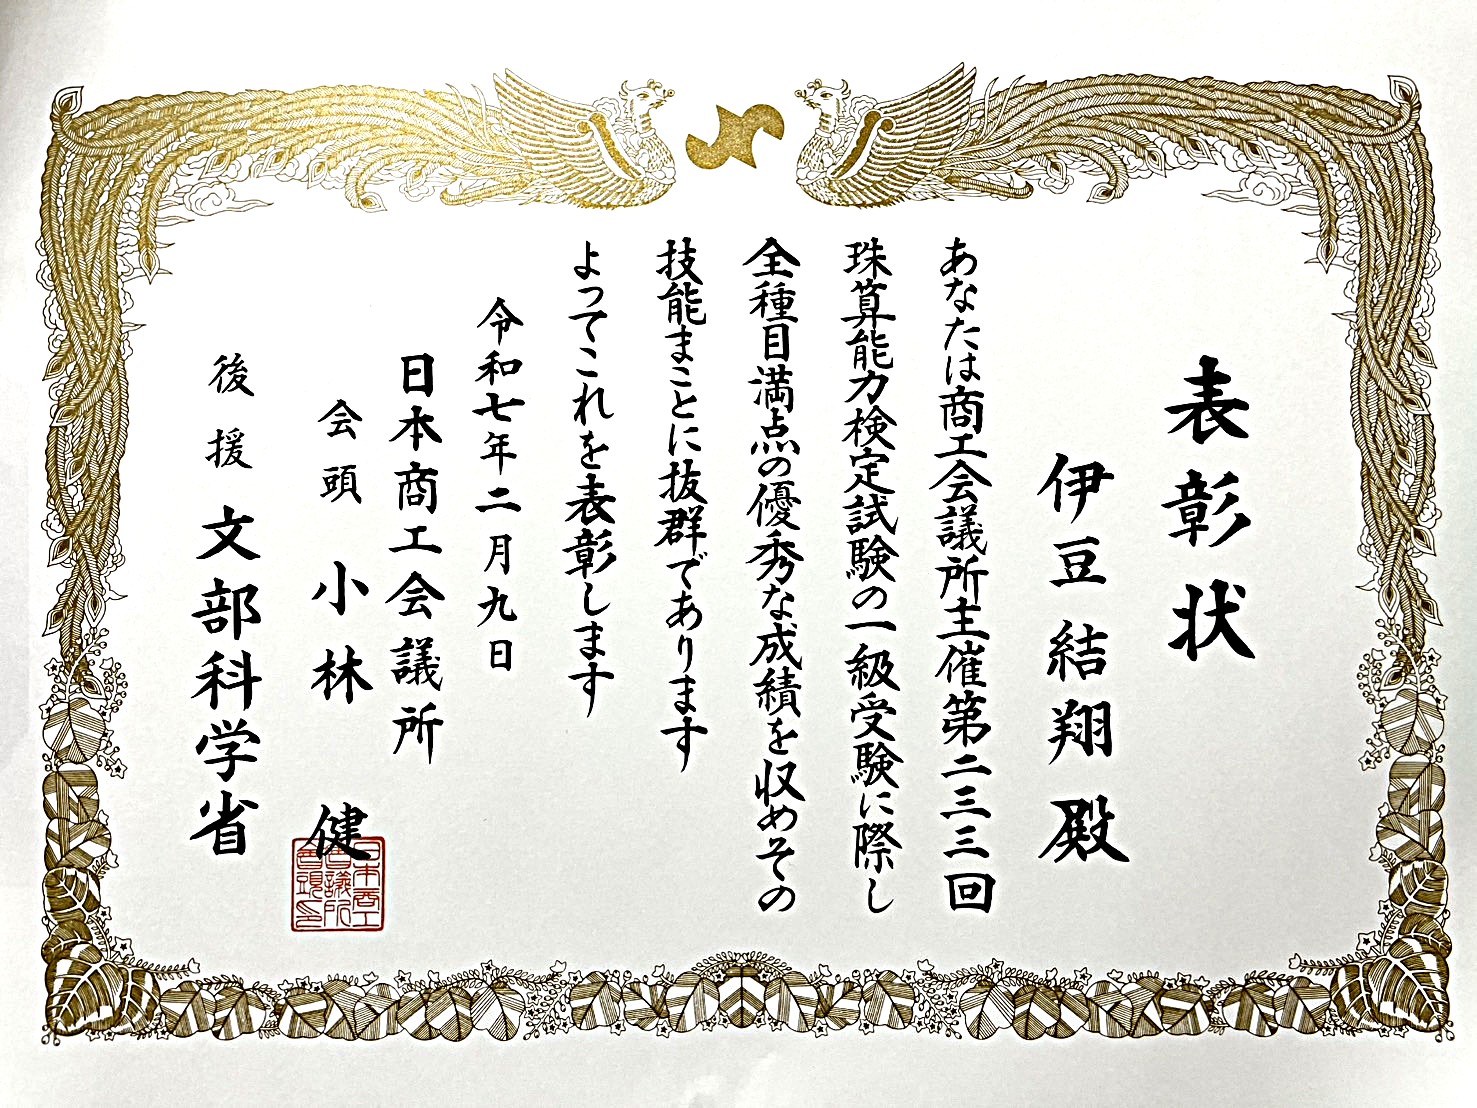 表彰状
伊豆結翔殿
あなたは商工会議所主催第二三三回
珠算能力検定試験の一級受験に際し
全種目満点の優秀な成績を収めその
技能まことに抜群であります
よってこれを表彰します
令和七年二月九日
日本商工会議所
会頭 小林 健
日本商工
会議所
会頭印
後援 文部科学省